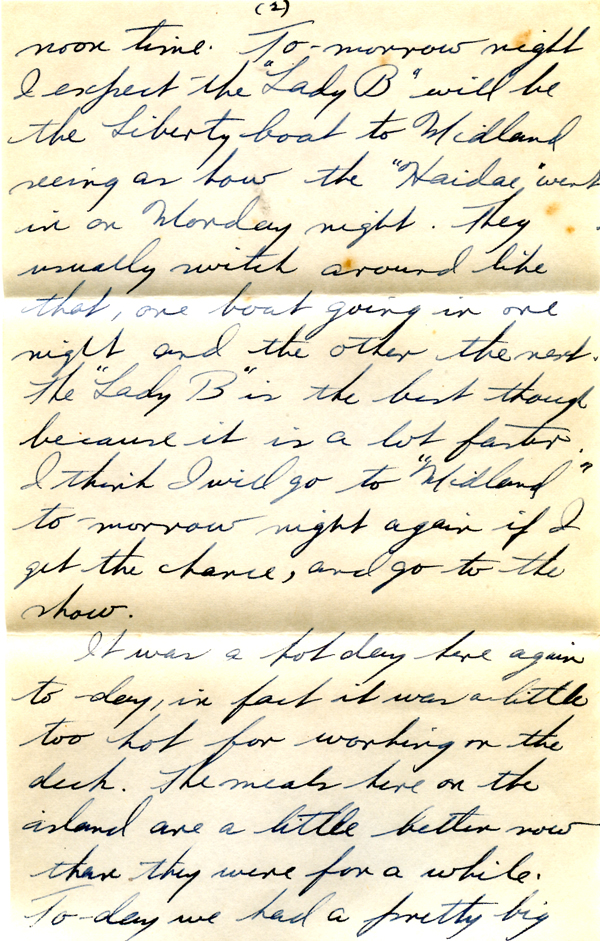 (2)
noon time. To-morrow night
I expect the "Lady B" will be
the Liberty boat to Midland
seeing as how the "Haidae" went
in on Monday night. They
usually switch around like
that, one boat going in one
night and the other the next.
The "Lady B" is the best though
because it is a lot faster.
I think I will go to "Midland"
to-morrow night again if I
get the chance, and go to the
show.
It was a hot day here again
to-day, in fact it was a little
too hot for working on the
deck. The meals here on the
island are a little better now
than they were for a while.
To-day we had a pretty big